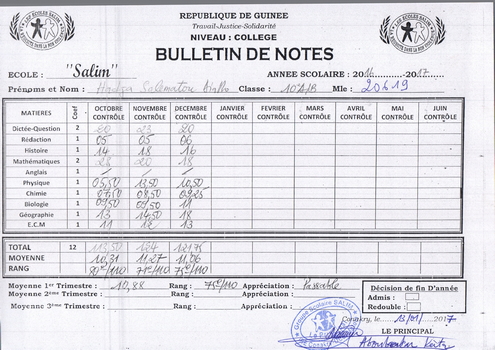 REPUBLIQUE DE GUINEE
Travail-Justice-Solidarité
NIVEAU : COLLEGE
BULLETIN DE NOTES
ECOLE : "Salim" ANNEE SCOLAIRE : 2016 2017
Prénpms et Nom : Classe : 10 Mle : 20619
MATIERES Coef OCTOBRE CONTRÔLE NOVEMBRE CONTRÔLE DECEMBRE CONTRÔLE JANVIER CONTRÔLE FEVRIER CONTRÔLE MARS CONTRÔLE AVRIL CONTRÔLE MAI CONTRÔLE JUIN CONTRÔLE
Dictée-Question 2 20 23 20
Rédaction 1 05 05 06
Histoire 1 14 18 16
Mathématiques 2 28 20 18
Anglais 1 / / /
Physique 1 05,50 13,50 10,50
Chimie 1 07,50 08,50 09,25
Biologie 1 09,50 09,50 11
Géographie 1 13 14,50 18
E.C.M 1 11 12 13
TOTAL 12 113,50 124 121,75
MOYENNE 10,31 11,27 11,06
RANG 90e/110 71e/110 75e/110
Moyenne 1er Trimestre : 10,88 Rang : 75e/110 Appréciation : Passable
Moyenne 2ème Trimestre : Rang : Appréciation :
Moyenne 3ème Trimestre : Rang : Appréciation :
Décision de fin D'année
Admis :
Redouble :
Conakry, le 13/01/2017
LE PRINCIPAL